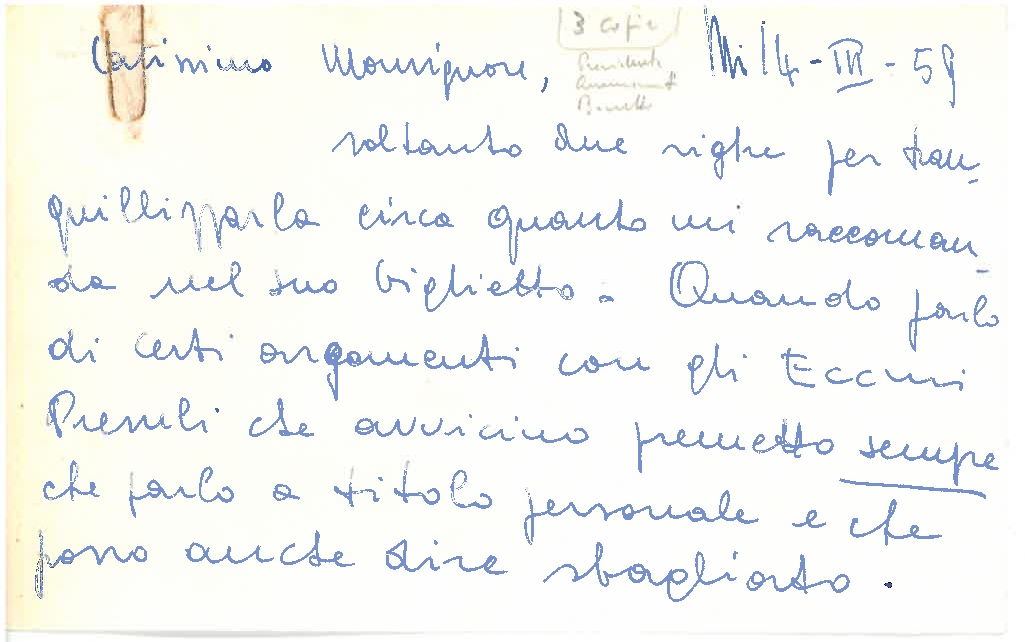 3 copie
Carissimo Monsignore, Mi 14-III-59
Presidente
soltanto due righe per tran-
quillizzarla circa quanto mi raccoman-
da nel suo biglietto. Quando parlo
di certi argomenti con gli Eccmi
Presuli che avvicino premetto sempre
che parlo a titolo personale e che
posso anche dire sbagliato.